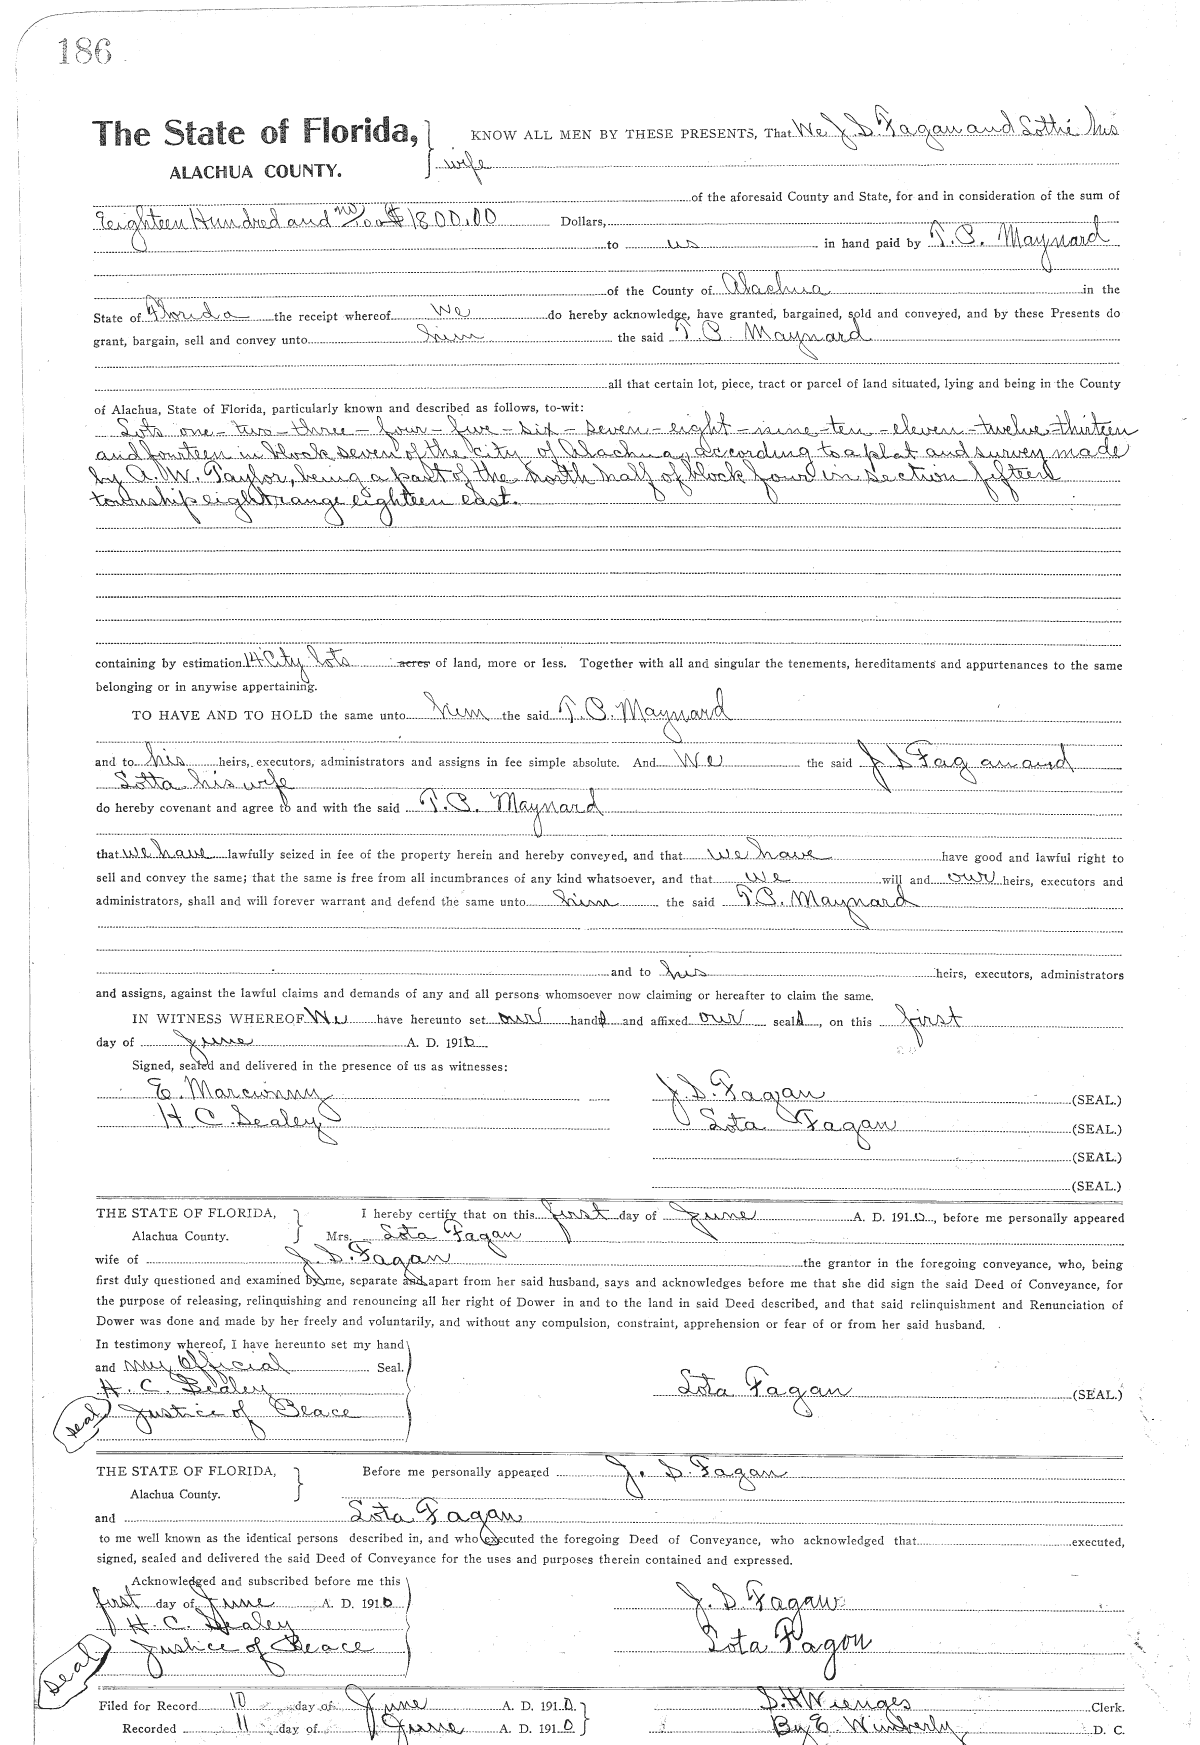 186
The State of Florida, KNOW ALL MEN BY THESE PRESENTS, That We J. D. Fagan and Lottie his
ALACHUA COUNTY. wife
of the aforesaid County and State, for and in consideration of the sum of
Eighteen Hundred and no/00 $1800.00 Dollars,
to us in hand paid by T. C. Maynard
of the County of Alachua in the
State of Florida the receipt whereof we do hereby acknowledge, have granted, bargained, sold and conveyed, and by these Presents do
grant, bargain, sell and convey unto him the said T. C. Maynard
all that certain lot, piece, tract or parcel of land situated, lying and being in the County
of Alachua, State of Florida, particularly known and described as follows, to-wit:
Lots one - two - three - four - five - six - seven - eight - nine - ten - eleven - twelve - thirteen
and fourteen in block seven of the city of Alachua, according to a plat and survey made
by A. W. Taylor, being a part of the north half of block four in section fifteen
township eight range eighteen east.
containing by estimation 14 City lots acres of land, more or less. Together with all and singular the tenements, hereditaments and appurtenances to the same
belonging or in anywise appertaining.
TO HAVE AND TO HOLD the same unto him the said T. C. Maynard
and to his heirs, executors, administrators and assigns in fee simple absolute. And We the said J D Fagan and
Lotta his wife
do hereby covenant and agree to and with the said T. C. Maynard
that we have lawfully seized in fee of the property herein and hereby conveyed, and that we have have good and lawful right to
sell and convey the same; that the same is free from all incumbrances of any kind whatsoever, and that we will and our heirs, executors and
administrators, shall and will forever warrant and defend the same unto him the said T. C. Maynard
and to his heirs, executors, administrators
and assigns, against the lawful claims and demands of any and all persons whomsoever now claiming or hereafter to claim the same.
IN WITNESS WHEREOF We have hereunto set our hands and affixed our seals, on this first
day of June A. D. 1910
Signed, sealed and delivered in the presence of us as witnesses:
E. J. D. Fagan (SEAL.)
H. C. Sealey Lota Fagan (SEAL.)
(SEAL.)
(SEAL.)
THE STATE OF FLORIDA, I hereby certify that on this first day of June A. D. 1910, before me personally appeared
Alachua County. Mrs. Lota Fagan
wife of J. D. Fagan the grantor in the foregoing conveyance, who, being
first duly questioned and examined by me, separate and apart from her said husband, says and acknowledges before me that she did sign the said Deed of Conveyance, for
the purpose of releasing, relinquishing and renouncing all her right of Dower in and to the land in said Deed described, and that said relinquishment and Renunciation of
Dower was done and made by her freely and voluntarily, and without any compulsion, constraint, apprehension or fear of or from her said husband.
In testimony whereof, I have hereunto set my hand
and my Official Seal.
H. C. Sealey Lota Fagan (SEAL.)
seal Justice of Peace
THE STATE OF FLORIDA, Before me personally appeared J. D. Fagan
Alachua County.
and Lota Fagan
to me well known as the identical persons described in, and who executed the foregoing Deed of Conveyance, who acknowledged that executed,
signed, sealed and delivered the said Deed of Conveyance for the uses and purposes therein contained and expressed.
Acknowledged and subscribed before me this
first day of June A. D. 1910 J. D. Fagan
H. C. Sealey
seal Justice of Peace Lota Fagan
Filed for Record 10 day of June A. D. 1910. S. H. Wienges Clerk.
Recorded 11 day of June A. D. 1910 By E. Wimberly D. C.